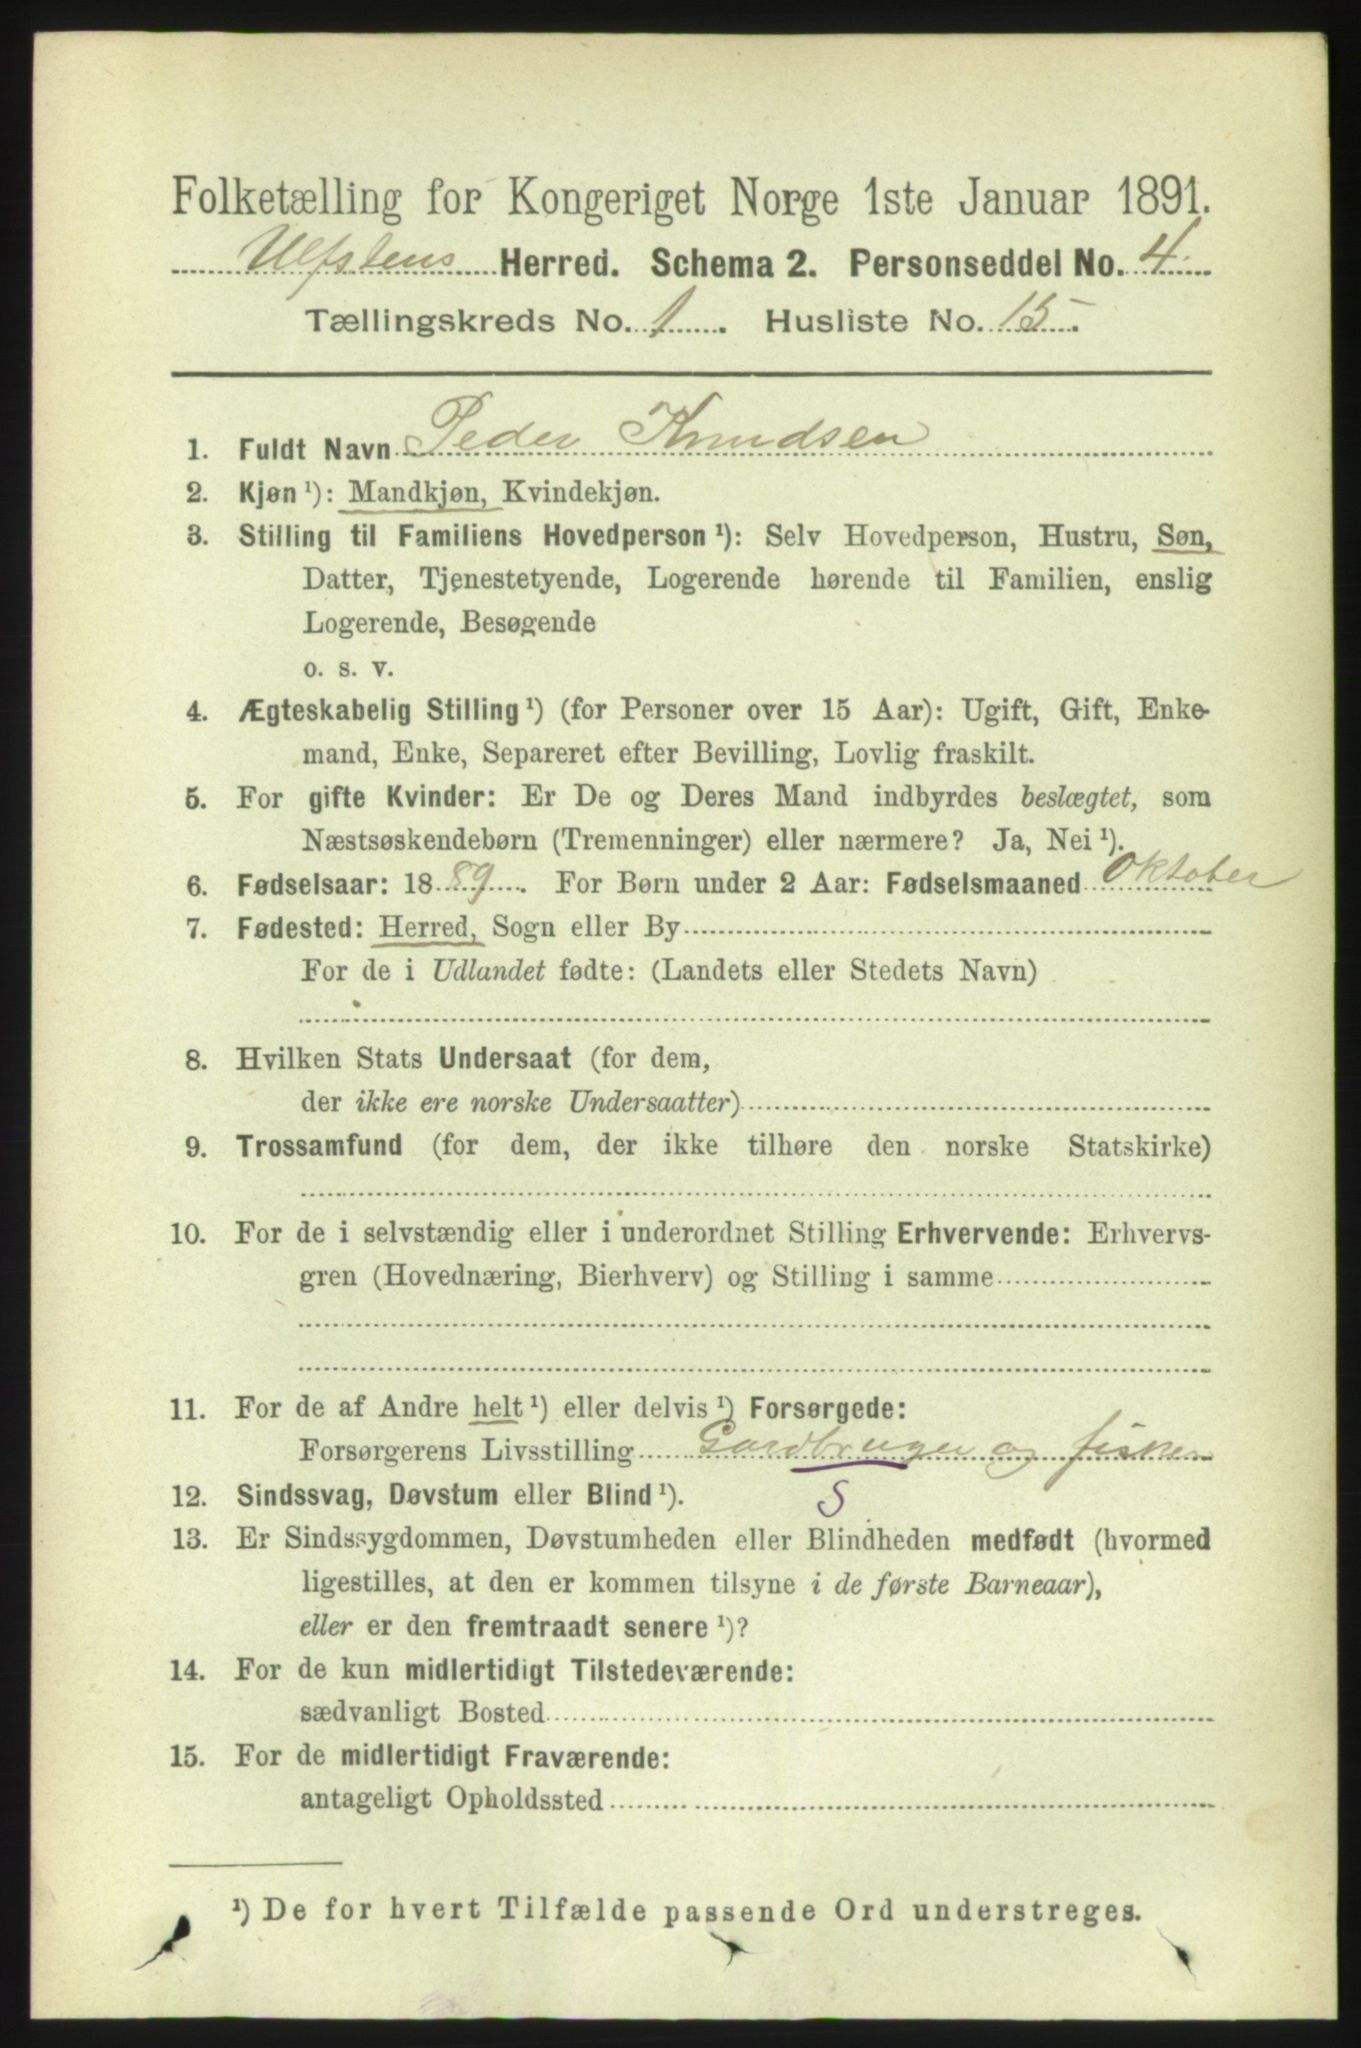 Folketælling for Kongeriget Norge 1ste Januar 1891.
Ulfstens Herred. Schema 2. Personseddel No. 4.
Tællingskreds No. 1. Husliste No. 15.
1. Fuldt Navn Peder Knudsen
2. Kjøn ¹): Mandkjøn, Kvindekjøn.
3. Stilling til Familiens Hovedperson ¹): Selv Hovedperson, Hustru, Søn,
Datter, Tjenestetyende, Logerende hørende til Familien, enslig
Logerende, Besøgende
o. s. v.
4. Ægteskabelig Stilling ¹) (for Personer over 15 Aar): Ugift, Gift, Enke-
mand, Enke, Separeret efter Bevilling, Lovlig fraskilt.
5. For gifte Kvinder: Er De og Deres Mand indbyrdes beslægtet, som
Næstsøskendebørn (Tremenninger) eller nærmere? Ja, Nei ¹).
6. Fødselsaar: 1889. For Børn under 2 Aar: Fødselsmaaned Oktober
7. Fødested: Herred, Sogn eller By
For de i Udlandet fødte: (Landets eller Stedets Navn)
8. Hvilken Stats Undersaat (for dem,
der ikke ere norske Undersaatter)
9. Trossamfund (for dem, der ikke tilhøre den norske Statskirke)
10. For de i selvstændig eller i underordnet Stilling Erhvervende: Erhvervs-
gren (Hovednæring, Bierhverv) og Stilling i samme
11. For de af Andre helt ¹) eller delvis ¹) Forsørgede:
Forsørgerens Livsstilling Gardbruger og fisker
12. Sindssvag, Døvstum eller Blind ¹). S
13. Er Sindssygdommen, Døvstumheden eller Blindheden medfødt (hvormed
ligestilles, at den er kommen tilsyne i de første Barneaar),
eller er den fremtraadt senere ¹)?
14. For de kun midlertidigt Tilstedeværende:
sædvanligt Bosted
15. For de midlertidigt Fraværende:
antageligt Opholdssted
¹) De for hvert Tilfælde passende Ord understreges.